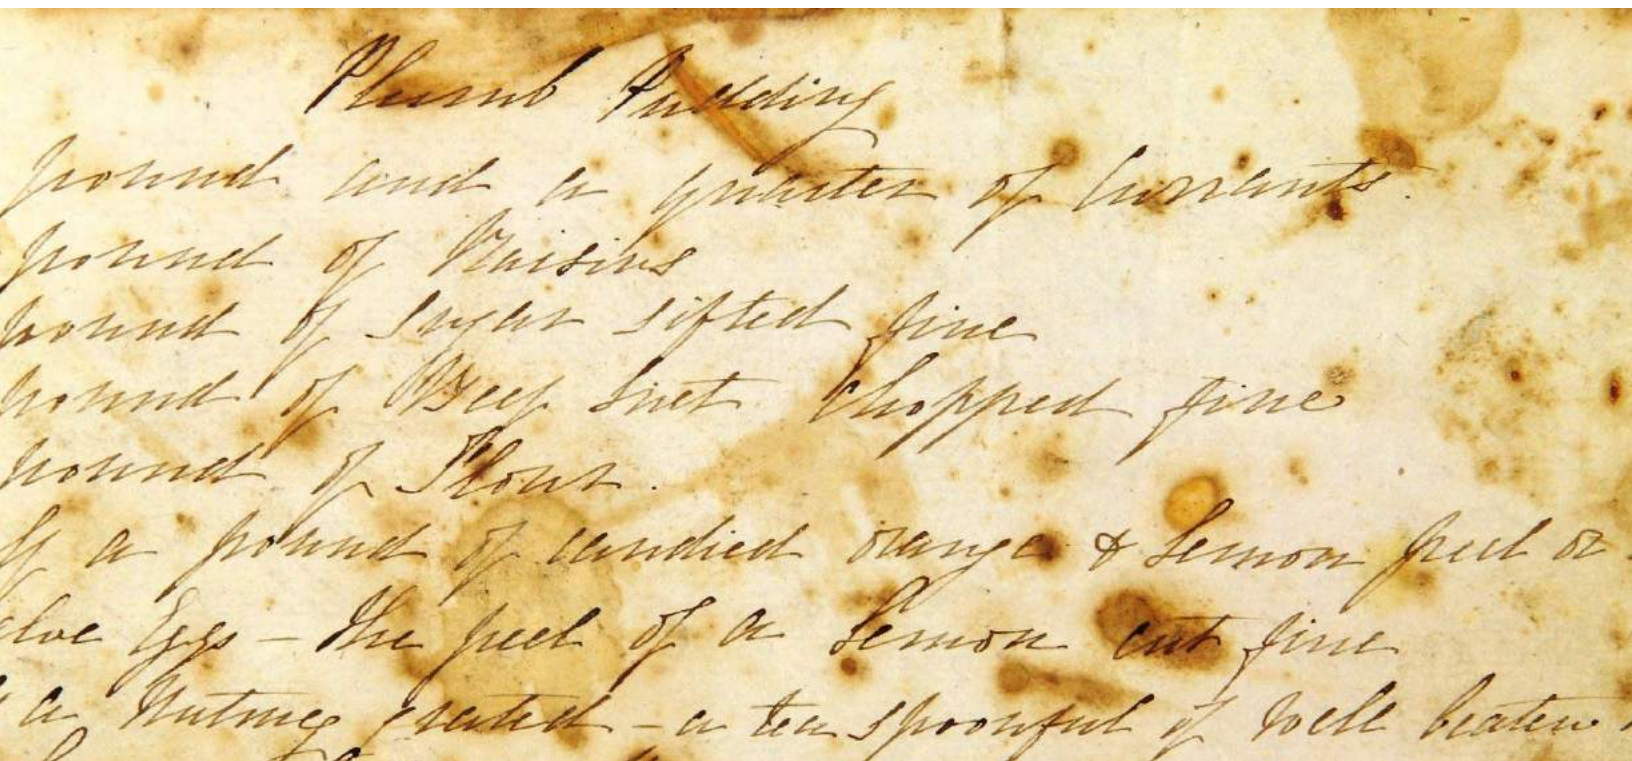 Plumb Pudding
pound and a quarter of Currants.
pound of Raisins
pound of Sugar sifted fine
pound of Beef Suet Chopped fine
pound of Flour.
lf a pound of candied orange & Lemon peel or
elve Eggs - the peel of a Lemon cut fine
a Nutmeg grated - a tea spoonful of well beaten